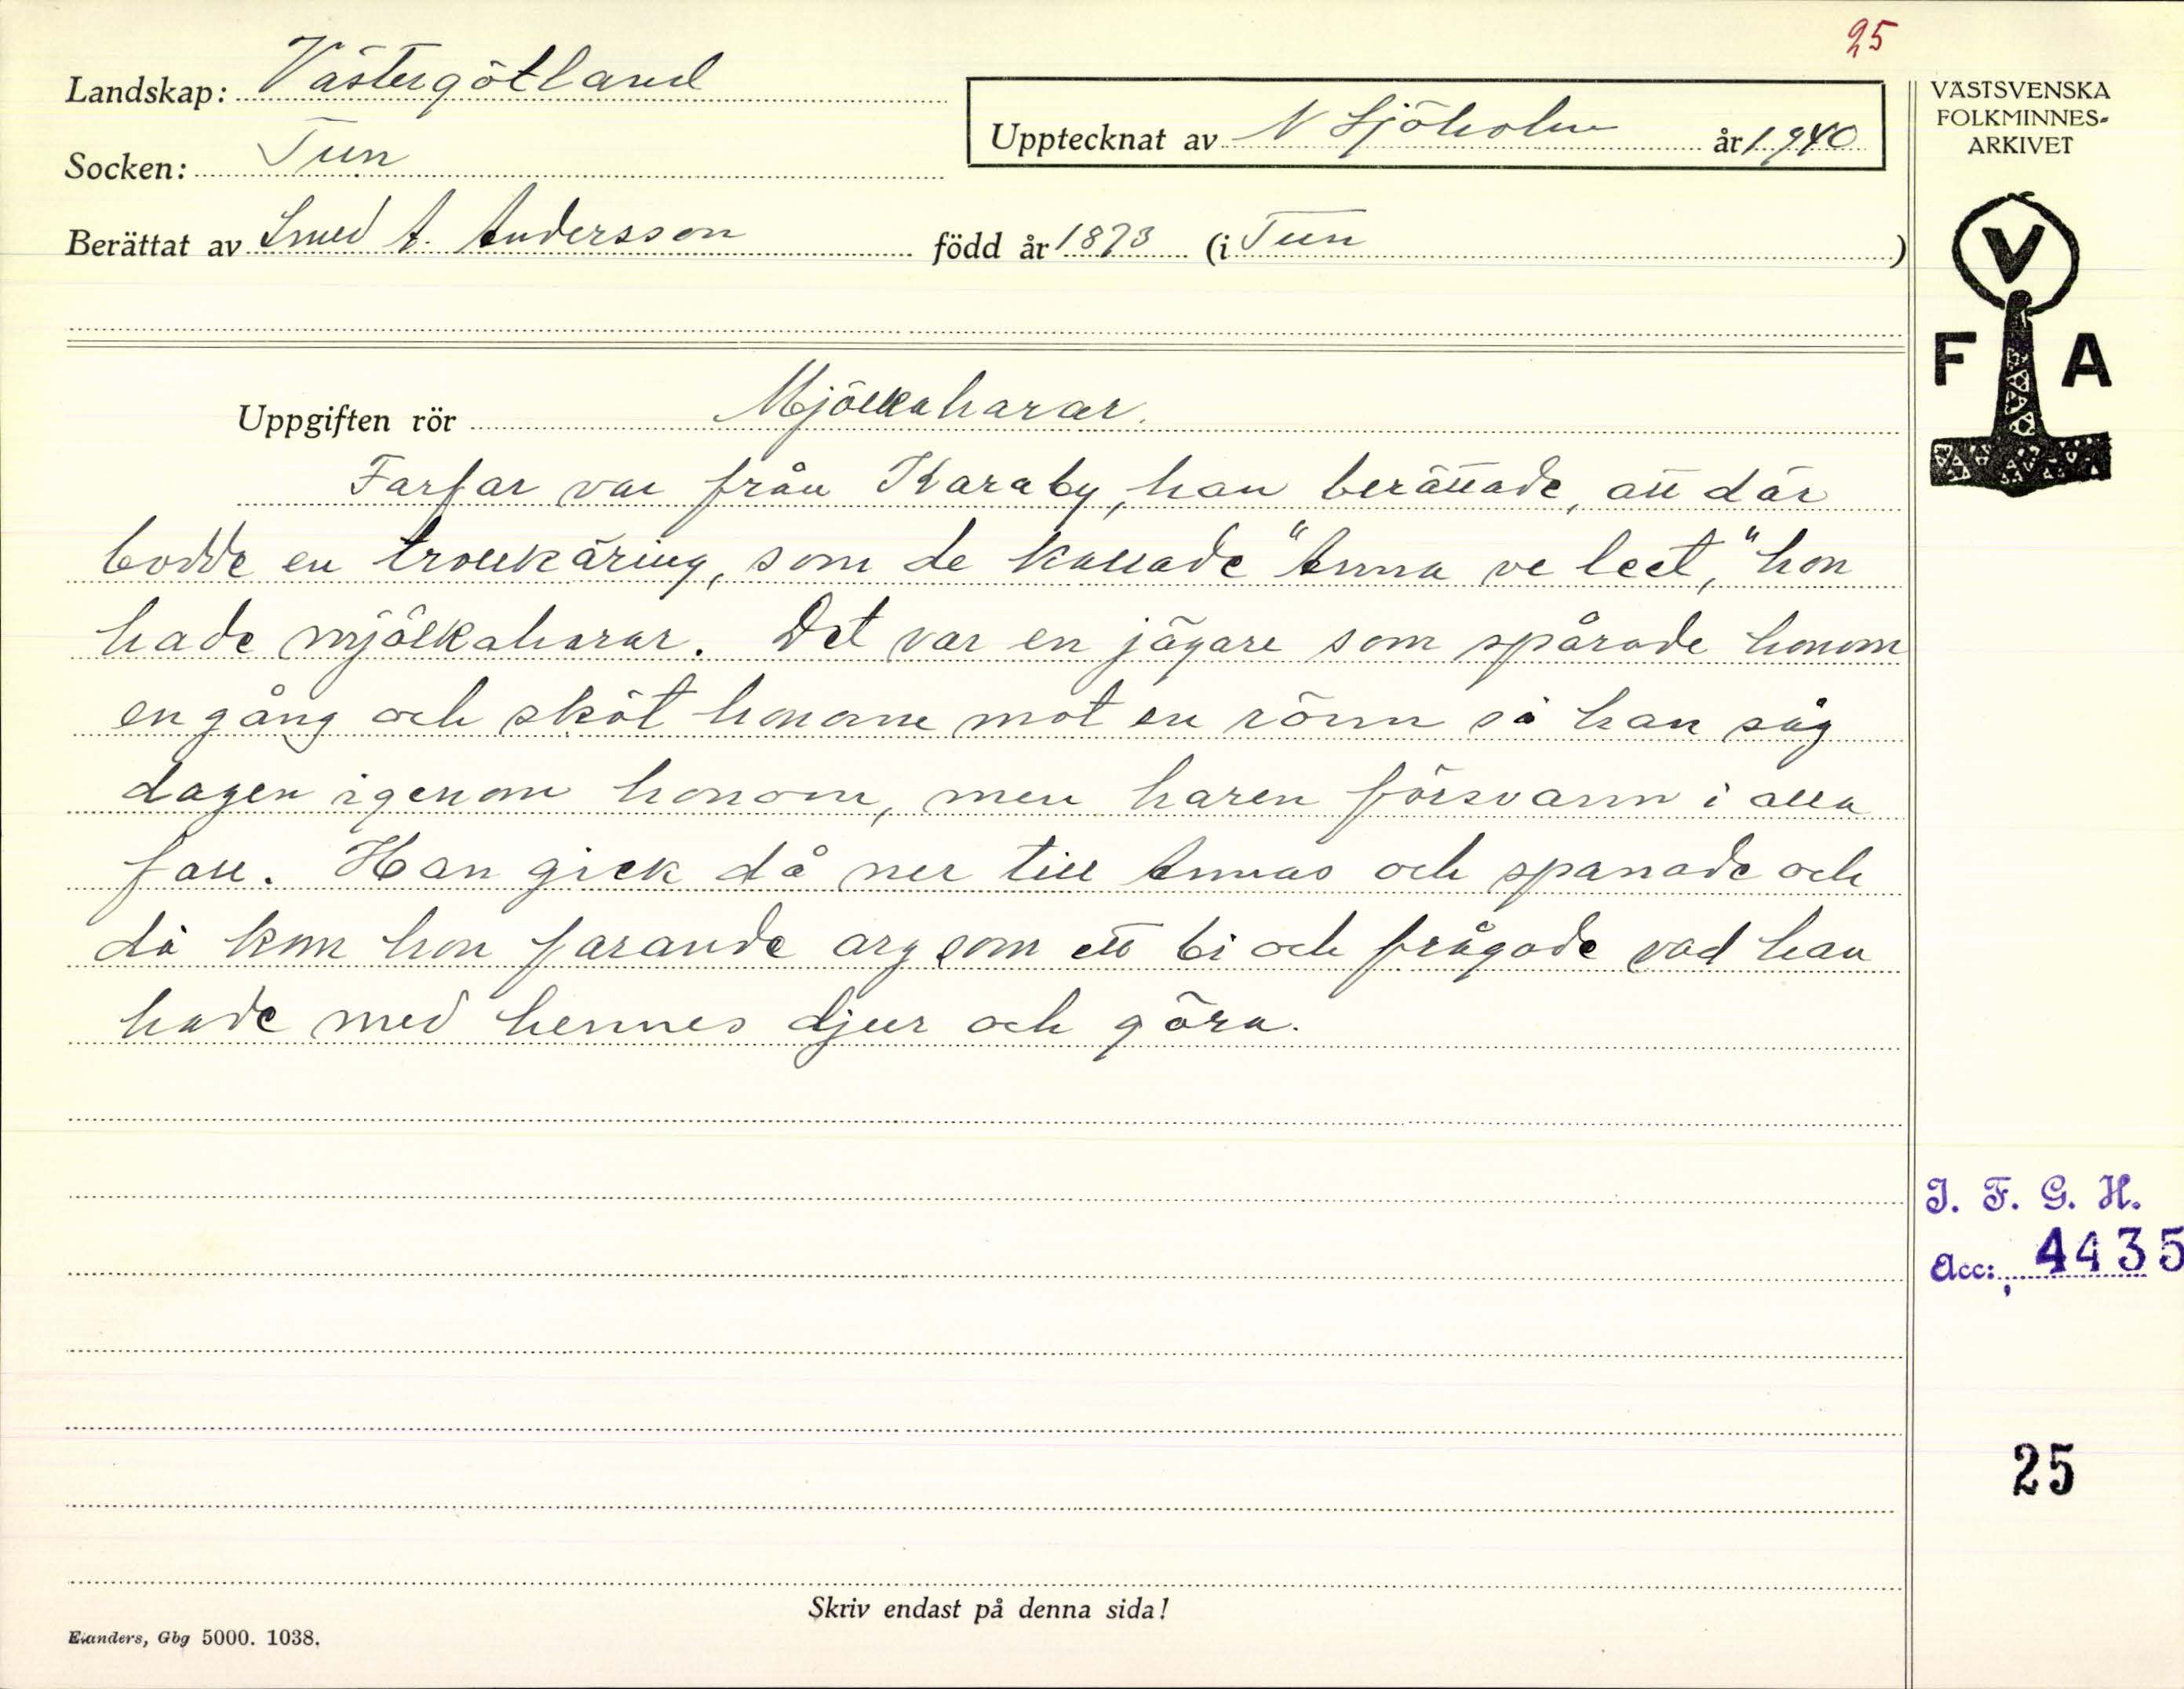 25
Landskap: Västergötland
Socken: Tun
Upptecknat av N Sjöholm år 1940
Berättat av Smed A. Andersson född år 1873 (i Tun )
VÄSTSVENSKA
FOLKMINNES-
ARKIVET
V
F A
Uppgiften rör Mjölkaharar.
Farfar var från Karaby, han berättade, att där
bodde en trollkäring, som de kallade "Anna ve leet," hon
hade mjölkaharar. Det var en jägare som spårade honom
en gång och sköt honom mot en rönn så han såg
dagen igenom honom, men haren försvann i alla
fall. Han gick då ner till Annas och spanade och
då kom hon farande arg som ett bi och frågade vad han
hade med hennes djur och göra.
I. F. G. H.
Acc: 4435
25
Skriv endast på denna sida!
Elanders, Gbg 5000. 1038.